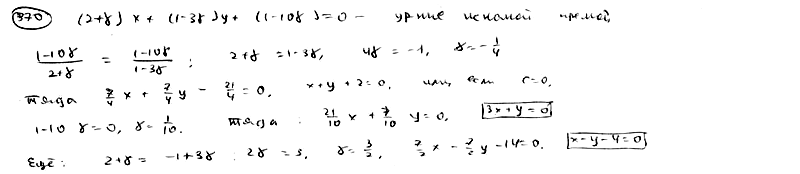 370 (2+γ)x + (1-3γ)y + (1-10γ)=0 – ур-ние искомой прямой,
(1-10γ)/(2+γ) = (1-10γ)/(1-3γ) ; 2+γ = 1-3γ, 4γ = -1, γ = -1/4
тогда 7/4 x + 7/4 y - 21/4 = 0, x+y+2=0, или если c=0,
1-10γ=0, γ=1/10. тогда: 21/10 x + 7/10 y=0, 3x+y=0
Ещё: 2+γ = -1+3γ : 2γ = 3, γ = 3/2, 7/2 x - 7/2 y -14=0. x-y-4=0